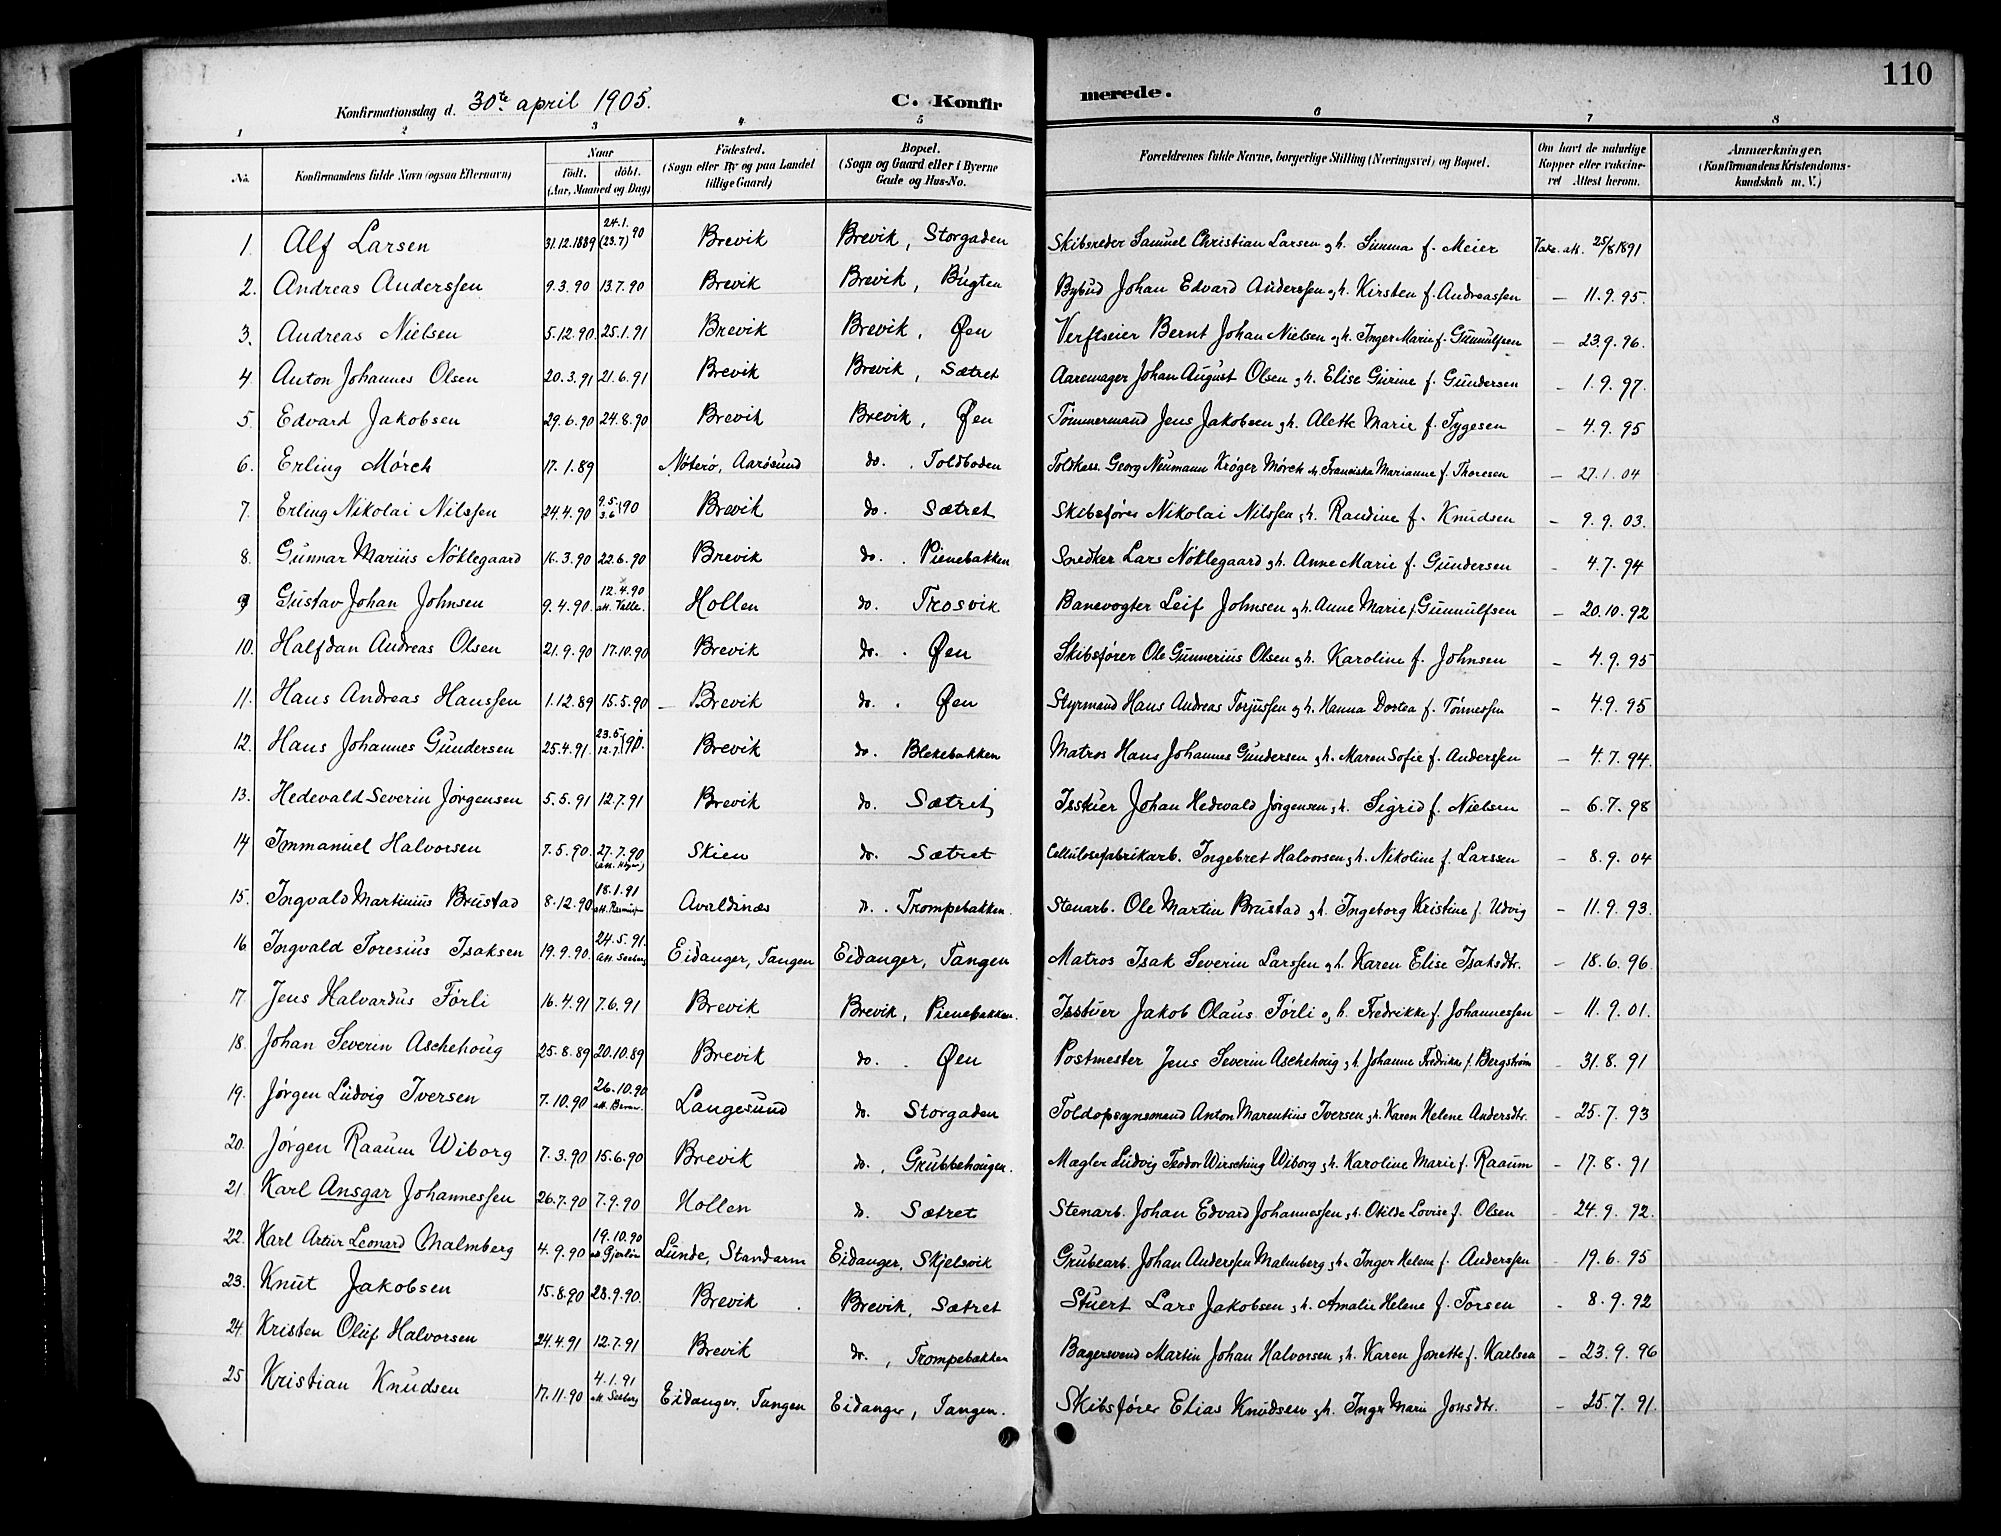 110
Konfirmationsdag d. 30te april 1905. C. Konfirmerede.
1 2 3 4 5 6 7 8
No. Konfirmandens fulde Navn (ogsaa Efternavn) Naar født. døbt. (Aar, Maaned og Dag) Fødested. (Sogn eller By og paa Landet tillige Gaard) Bopæl. (Sogn og Gaard eller i Byerne Gade og Hus-No. Forældrenes fulde Navne, borgerlige Stilling (Næringsvei) og Bopæl. Om havt de naturlige Kopper eller vaccineret Attest herom. Anmærkninger. (Konfirmandens Kristendomskundskab m. V.)
1. Alf Larsen 31.12.1889 24.1. (23.7) 90 Brevik Brevik, Storgaden Skibsreder Samuel Christian Larsen og h. Simma f. Meier Vakc. att. 25/8 1891
2. Andreas Anderssen 9.3.90 13.7.90 Brevik Brevik, Bugten Bybud Johan Edvard Anderssen og h. Kirsten f. Andreassen — 11.9.95.
3. Andreas Nielsen 5.12.90. 25.1.91 Brevik Brevik, Øen Verftseier Bernt Johan Nielsen og h. Inger Marie f. Gunnulfsen — 23.9.96.
4. Anton Johannes Olsen 20.3.91 21.6.91 Brevik Brevik, Sætret Aaremager Johan August Olsen og h. Elise Gurine f. Gundersen — 1.9.97.
5. Edvard Jakobsen 29.6.90 24.8.90 Brevik Brevik, Øen Tømmermand Jens Jakobsen og h. Alette Marie f. Tygesen — 4.9.95
6. Erling Mørch 17.1.89 Nøterø, Aarøsund do. , Toldboden Toldkass. Georg Neumann Krøger Mørch h. Franciska Marianne f. Thoresen — 27.1.04
7. Erling Nikolai Nilssen 24.4.90 9.5. 3.6 90 Brevik do. Sætret Skibsfører Nikolai Nilssen og h. Randine f. Knudsen — 9.9.03.
8. Gunnar Marius Nøklegaard 16.3.90 22.6.90 Brevik do. . Pienebakken Snedker Lars Nøklegaard og h. Anne Marie f. Gundersen — 4.7.94
9 Gustav Johan Johnsen 9.4.90. 12.4.90 att. Valle. Hollen do. Trosvik Banevogter Leif Johnsen og h. Anne Marie f. Gunnulfsen — 20.10.92
10. Halfdan Andreas Olsen 21.9.90 17.10.90 Brevik do. . Øen Skibsfører Ole Gunnerius Olsen og h. Karoline f. Johnsen — 4.9.95
11. Hans Andreas Hanssen 1.12.89 15.5.90 Brevik do. . Øen Styrmand Hans Andreas Torjussen og h. Hanna Dortea f. Tønnessen — 4.9.95
12. Hans Johannes Gundersen 25.4.91. 23.5 12.7. 90. Brevik do. Blekebakken Matros Hans Johannes Gundersen og h. Maren Sofie f. Anderssen — 4.7.94.
13. Hedevald Severin Jørgensen 5.5.91 12.7.91 Brevik do. Sætret Isskier Johan Hedevald Jørgensen og h. Sigrid f. Nielsen — 6.7.98
14 Immanuel Halvorsen 7.5.90. 27.7.90 Skien do. Sætret Cellulosefabrikarb. Ingebret Halvorsen og h. Nikoline f. Larssen — 8.9.04
15. Ingvald Martinius Brustad 8.12.90 18.1.91 Avaldsnæs do. . Trompebakken. Stenarb. Ole Martin Brustad og h. Ingeborg Kristine f. Udvig — 11.9.93.
16 Ingvald Toresius Isaksen 19.9.90. 24.5.91. att. Seeberg Eidanger, Tangen Eidanger, Tangen Matros Isak Severin Larssen og h. Karen Elise Isaksdtr. — 18.6.96
17. Jens Halvardus Førli 16.4.91 7.6.91 Brevik Brevik, Pienebakken. Isstuer Jakob Olaus Førli og h. Fredrikke f. Johannessen — 11.9.01.
18. Johan Severin Aschehoug 25.8.89 20.10.89 Brevik do. . Øen Postmester Jens Severin Aschehoug og h. Johanne Fredrikke f. Bergstrøm — 31.8.91
19. Jørgen Ludvig Iversen 7.10.90 26.10.90 Langesund do. Storgaden Toldopsynsmand Anton Marentius Iversen og h. Karen Helene Andersdtr. — 25.7.93
20. Jørgen Raaum Wiborg 7.3.90 15.6.90 Brevik do. , Grubbehougen. Mægler Ludvig Teodor Wirsching Wiborg og h. Karoline Marie f. Raaum — 17.8.91
21. Karl Ansgar Johannessen 26.7.90 7.9.90 Hollen do. Sætret Stenarb. Johan Edvard Johannessen og h. Otilde Lovise f. Olsen — 24.9.92.
22. Karl Artur Leonard Malmberg 4.9.90 19.10.90 Lunde, Standarm Eidanger, Skjelsvik Grubearb. Johan Anderssen Malmberg og h. Inger Helene f. Anderssen — 19.6.95
23. Knut Jakobsen 15.8.90 28.9.90. Brevik Brevik, Sætret Stuert Lars Jakobsen og h. Amalie Helene f. Torsen — 8.9.92
24. Kristen Oluf Halvorsen 24.4.91 12.7.91 Brevik do. , Trompebakken Bagersvend Martin Johan Halvorsen og h. Karen Jonette f. Karlsen — 23.9.96
25 Kristian Knudsen 17.11.90 4.1.91 att. Seeberg Eidanger, Tangen Eidanger, Tangen. Skibsfører Elias Knudsen og h. Inger Marie Jonsdtr. — 25.7.91.